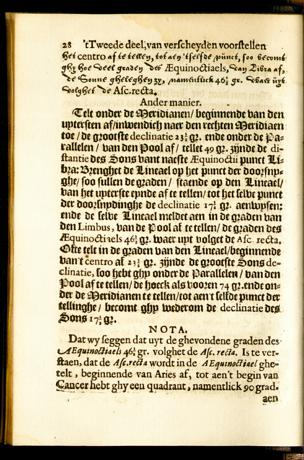 28 'tTweede deel, van verscheyden voorstellen
het centro af te tellen, tot aen 'tselfde punct, soo becomt
ghy hoe veel graden des Æquinoctiaels, van Libra af,
de Sonne gheleghen zy, namentlick 46½ gr. waer uyt
volghet de Asc. recta.
Ander manier.
Telt onder de Meridianen/ beginnende van den
uptersten af/inwendich naer den rechten Meridiaen
toe/ de grootste declinatie 23½ gr. ende onder de Pa-
rallelen/ van den Pool af/ tellet 49 gr. zijnde de di-
stantie des Sons vant naeste Æquinoctii punct Li-
bra: Brenghet de Lineael op het punct der doorsny-
ghe/ soo sullen de graden/ staende op den Lineael/
van het uyterste eynde af te tellen/ tot het selve punct
der doorsnydinghe de declinatie 17½ gr. aenwysen:
ende de selve Lineael meldet aen in de graden van
den Limbus, van de Pool af te tellen/ de graden des
Æquinoctiaels 46½ gr. waer uyt volget de Asc. recta.
Ofte telt in de graden van den Lineael/beginnende
van 't centro af 23½ gr. zijnde de grootste Sons de-
clinatie, soo hebt ghy onder de Parallelen/ van den
Pool af te tellen/ de hoeck als vooren 74 gr. ende on-
der de Meridianen te tellen/tot aen 't selfde punct der
tellinghe/ becomt ghy wederom de declinatie des
Sons 17½ gr.
NOTA.
Dat wy seggen dat uyt de ghevonden graden des
Æquinoctiaels 46½ gr. volghet de Asc. recta. Is te ver-
staen, dat de Asc. recta wordt in de Æquinoctiael ghe-
telt, beginnende van Aries af, tot aen't begin van
Cancer hebt ghy een quadrant, namentlick 90 grad.
aen